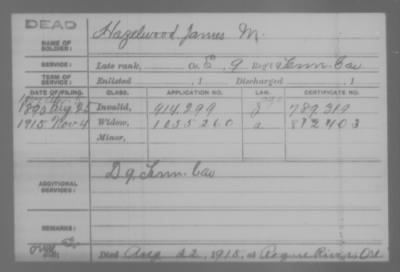 DEAD
NAME OF SOLDIER: Hazelwood, James M.
SERVICE: Late rank, Co. E, 9 Reg't Tenn. Cav
TERM OF SERVICE: Enlisted , 1 Discharged , 1
DATE OF FILING. CLASS. APPLICATION NO. LAW. CERTIFICATE NO.
1890 Aug 25 Invalid, 914.299 789.319
1915 Nov 4 Widow, 1055260 812403
Minor,
ADDITIONAL SERVICES: D 9 Tenn. Cav
REMARKS:
Died Aug 22, 1915, at Rogue River, Ore